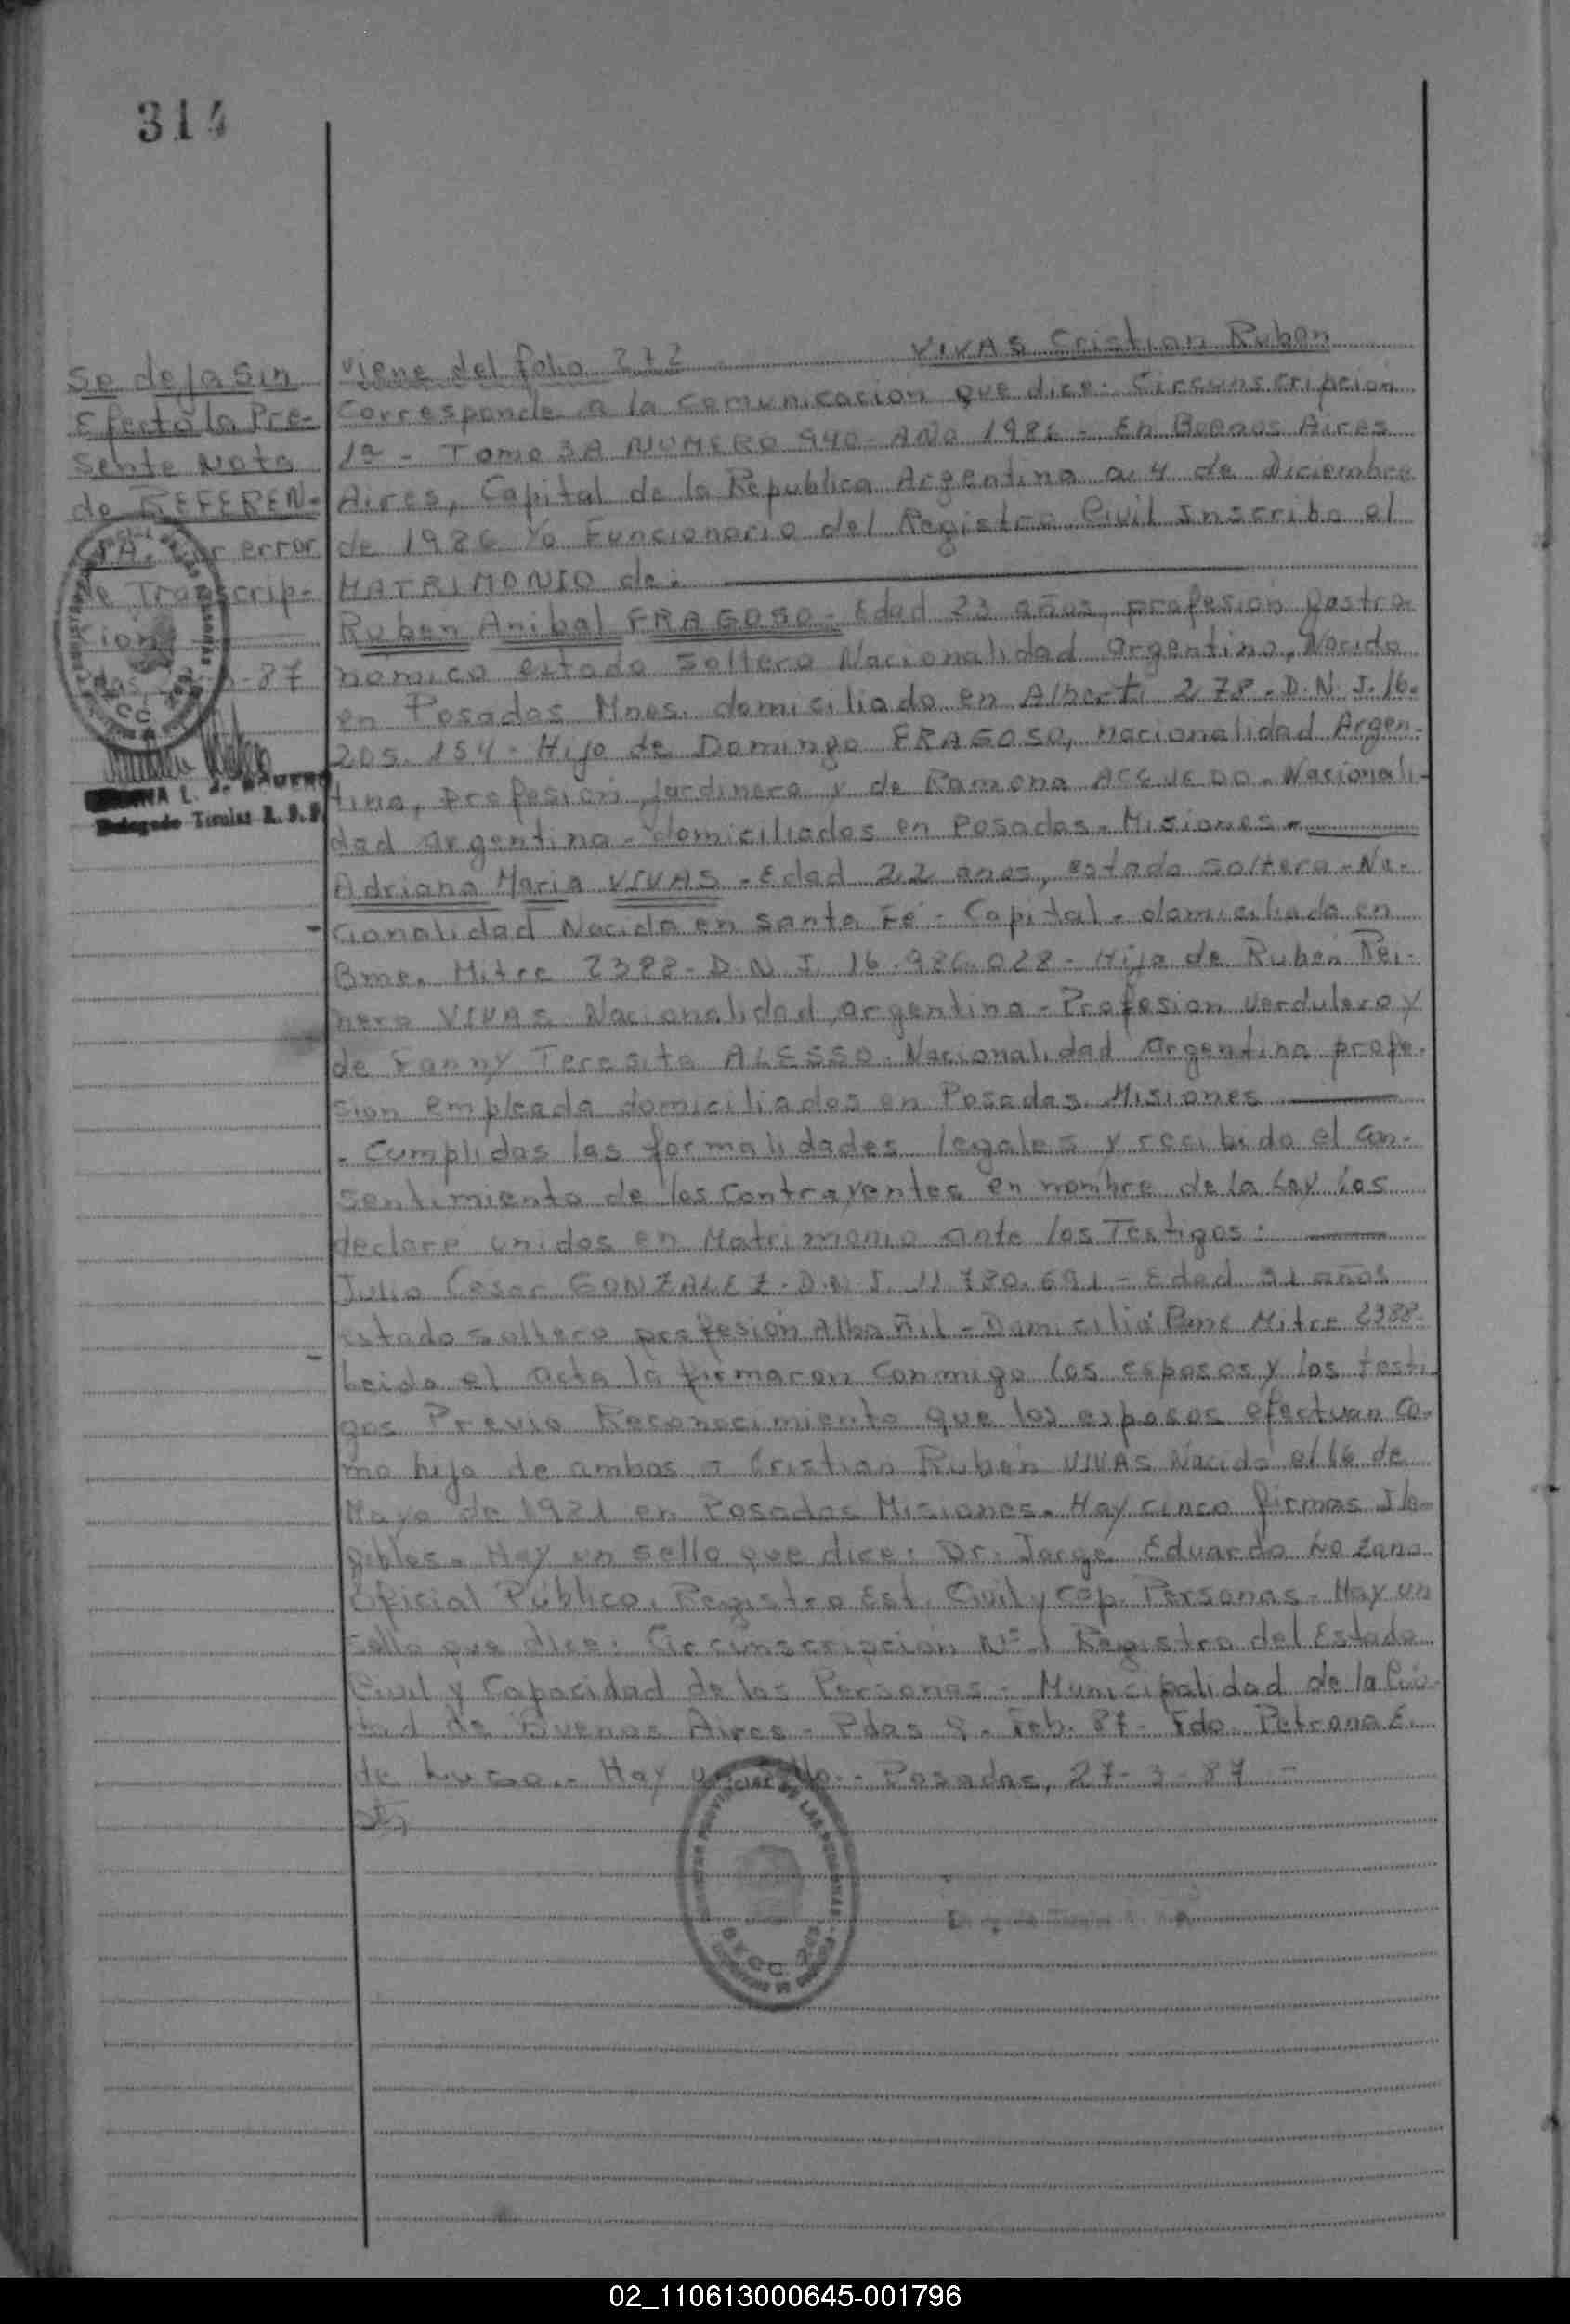 314
Se deja sin
Efecto la Pre-
sente Nota
de REFEREN-
CIA. Por error
de Transcrip-
cion
-87
Delegado Titular R. P. P.
Viene del folio 272 VIVAS Cristian Ruben
Corresponde a la comunicacion que dice: Circunscripcion
1a - Tomo 3A NUMERO 940 - AÑO 1986 - En Buenos Aires
Aires, Capital de la Republica Argentina a 4 de Diciembre
de 1986 Yo Funcionario del Registro Civil Inscribo el
MATRIMONIO de:
Ruben Anibal FRAGOSO - Edad 23 años, profesion gastro-
nomico estado soltero Nacionalidad argentino, Nacido
en Posadas Mnes. domiciliado en Alberti 278 - D.N.I. 16.
205.154 - Hijo de Domingo FRAGOSO, nacionalidad Argen-
tina, profesion jardinero y de Ramona ACEVEDO - Nacionali-
dad argentina - domiciliados en Posadas - Misiones -
Adriana Maria VIVAS - Edad 22 años, estado soltera - Na-
cionalidad Nacida en Santa Fé - Capital - domiciliada en
Bme. Mitre 2388 - D.N.I. 16.986.028 - Hija de Ruben Rei-
nero VIVAS Nacionalidad argentina - Profesion Verdulero y
de Fanny Teresita ALESSO - Nacionalidad argentina profe-
sion empleada domiciliados en Posadas Misiones
- Cumplidas las formalidades legales y recibido el con-
sentimiento de los contrayentes en nombre de la Ley los
declaré unidos en Matrimonio ante los Testigos:
Julio Cesar GONZALEZ - D.N.I. 11.780.691 - Edad 31 años
estado soltero profesion Albañil - Domicilio Bmé Mitre 2388-
Leida el acta la firmaron conmigo los esposos y los testi-
gos Previo Reconocimiento que los esposos efectuan co-
mo hijo de ambos a Cristian Ruben VIVAS Nacido el 16 de
Mayo de 1981 en Posadas Misiones. Hay cinco firmas Ile-
gibles. Hay un sello que dice: Dr. Jorge Eduardo Lozano
Oficial Público. Registro Est. Civil y cap. Personas - Hay un
sello que dice: Circunscripcion Nº 1 Registro del Estado
Civil y Capacidad de las Personas - Municipalidad de la Ciu-
dad de Buenos Aires - Pdas 9 - Feb. 87 - Fdo. Petrona E.
de Lugo.- Hay un sello.- Posadas, 27-3-87 -
02_110613000645-001796